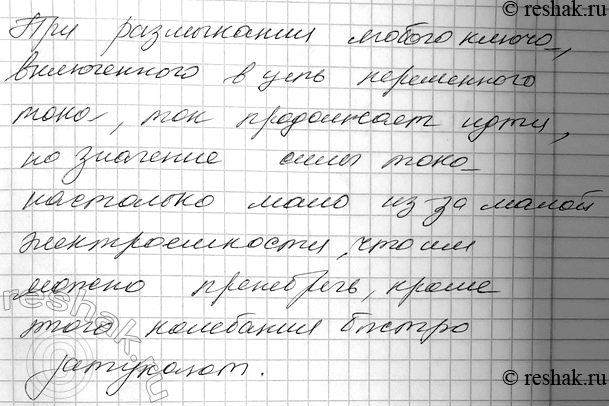 © reshak.ru
При размыкании любого ключа,
включенного в цепь переменного
тока, ток продолжает идти,
но значение силы тока
настолько мало из-за малой
электроемкости, что им
можно пренебречь, кроме
этого колебания быстро
затухают.
© reshak.ru